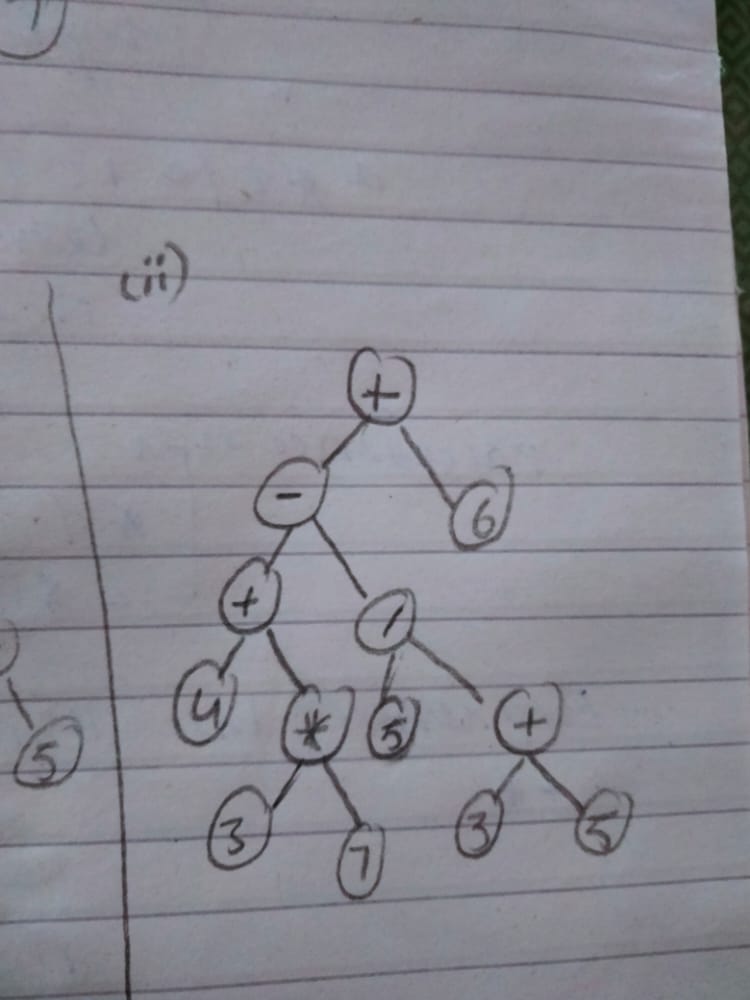 (ii)
+
- 6
+ /
4 * 5 +
5
3 7 3 5